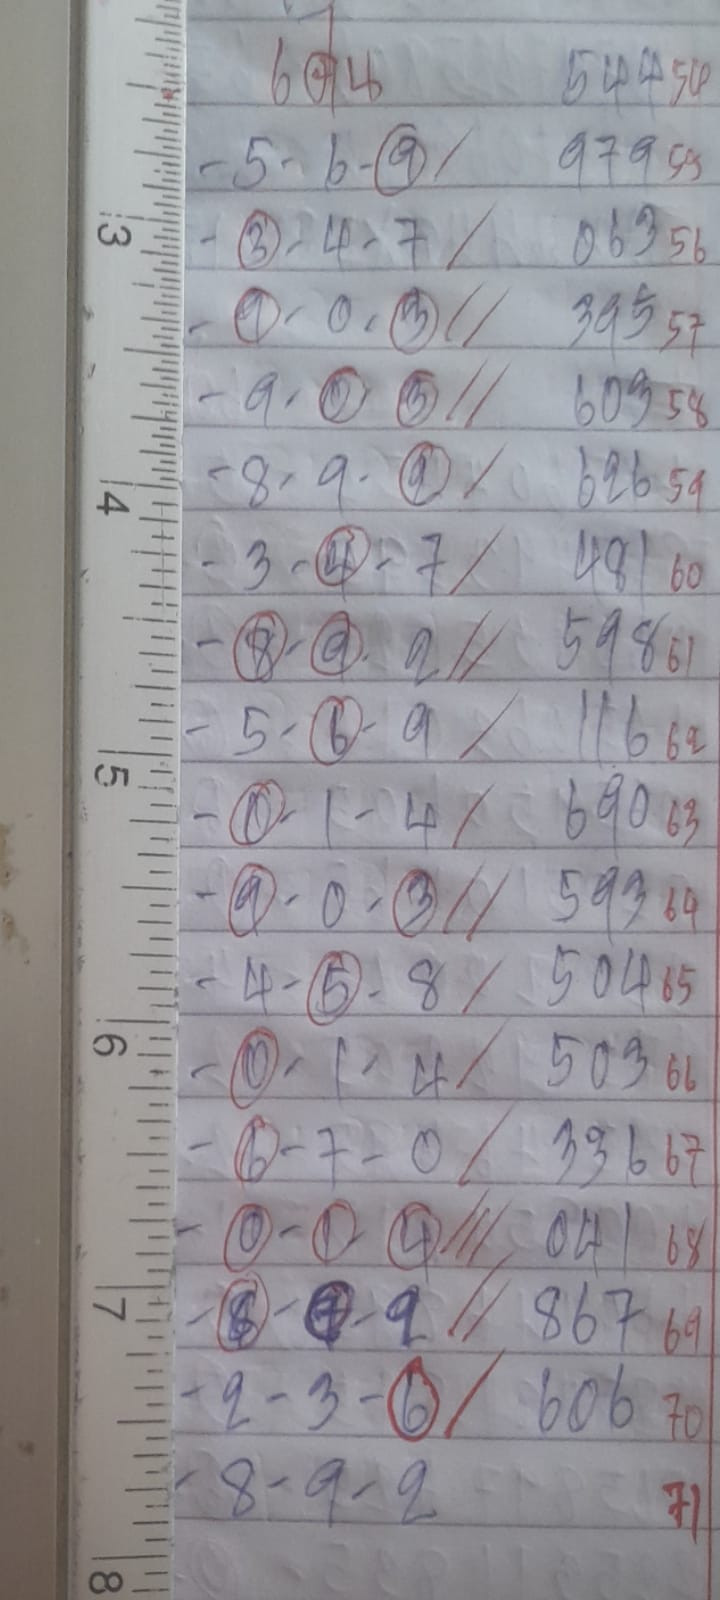 6 4 544 54
- 5 - 6 - 9 / 979 55
- 3 - 4 - 7 / 063 56
- 9 - 0 - 3 // 395 57
- 9 - 0 - 3 // 603 58
- 8 - 9 - 2 / 626 59
- 3 - 4 - 7 / 481 60
- 8 - 9 - 2 // 598 61
- 5 - 6 - 9 / 116 62
- 0 - 1 - 4 / 690 63
- 9 - 0 - 3 // 593 64
- 4 - 5 - 8 / 504 65
- 0 - 1 - 4 / 503 66
- 6 - 7 - 0 / 336 67
- 0 - 1 - 4 /// 041 68
- 8 - - 2 // 867 69
- 2 - 3 - 6 / 606 70
- 8 - 9 - 2 71
3
4
5
6
7
8